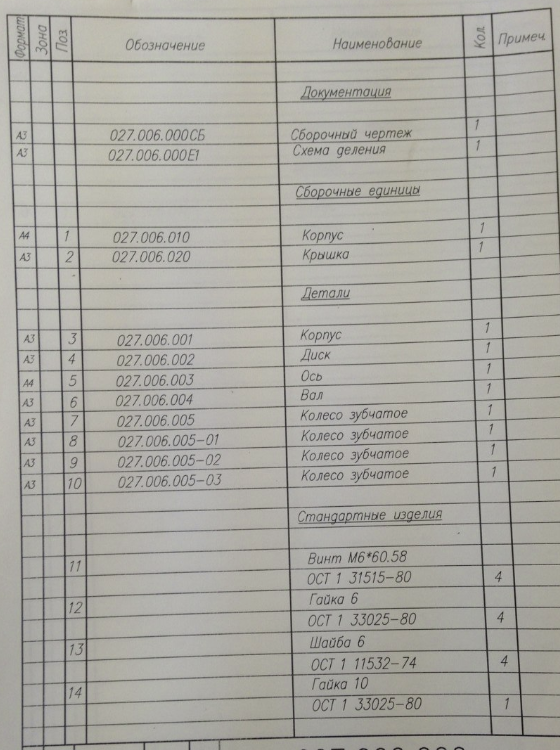 Формат Зона Поз Обозначение Наименование Кол Примеч
Документация
А3 027.006.000СБ Сборочный чертеж 1
А3 027.006.000Е1 Схема деления 1
Сборочные единицы
А4 1 027.006.010 Корпус 1
А3 2 027.006.020 Крышка 1
Детали
А3 3 027.006.001 Корпус 1
А3 4 027.006.002 Диск 1
А4 5 027.006.003 Ось 1
А3 6 027.006.004 Вал 1
А3 7 027.006.005 Колесо зубчатое 1
А3 8 027.006.005-01 Колесо зубчатое 1
А3 9 027.006.005-02 Колесо зубчатое 1
А3 10 027.006.005-03 Колесо зубчатое 1
Стандартные изделия
11 Винт М6*60.58
ОСТ 1 31515-80 4
12 Гайка 6
ОСТ 1 33025-80 4
13 Шайба 6
ОСТ 1 11532-74 4
14 Гайка 10
ОСТ 1 33025-80 1